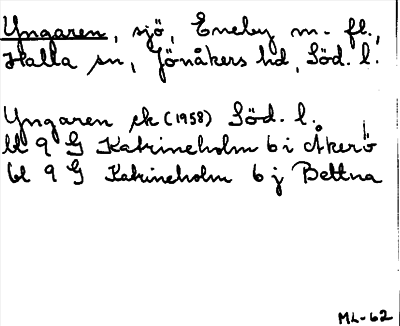 Yngaren, sjö, Eneby m. fl.,
Halla sn, Jönåkers hd, Söd. l.
Yngaren ek (1958) Söd. l.
bl 9 G Katrineholm 6 i Åkerö
bl 9 G Katrineholm 6 j Bettna
ML-62